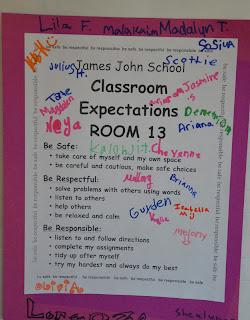 Lila F. Malakaim Madalyn T.
SaSiya
be safe be respectful be responsible be safe be respectful be responsible
Scottie
Julius H.
James John School
Classroom
Jasmine
Expectations
ROOM 13
Ariana
Naya
Be Safe:
Kamahjit
Cheyenne
• take care of myself and my own space
• be careful and cautious, make safe choices
Be Respectful:
Mallory
Brianna
• solve problems with others using words
• listen to others
• help others
• be relaxed and calm
Gurden
Kylie
Isabella
Be Responsible:
Melony
• listen to and follow directions
• complete my assignments
• tidy up after myself
• try my hardest and always do my best
be safe be respectful be responsible be safe be respectful be responsible
Olivia